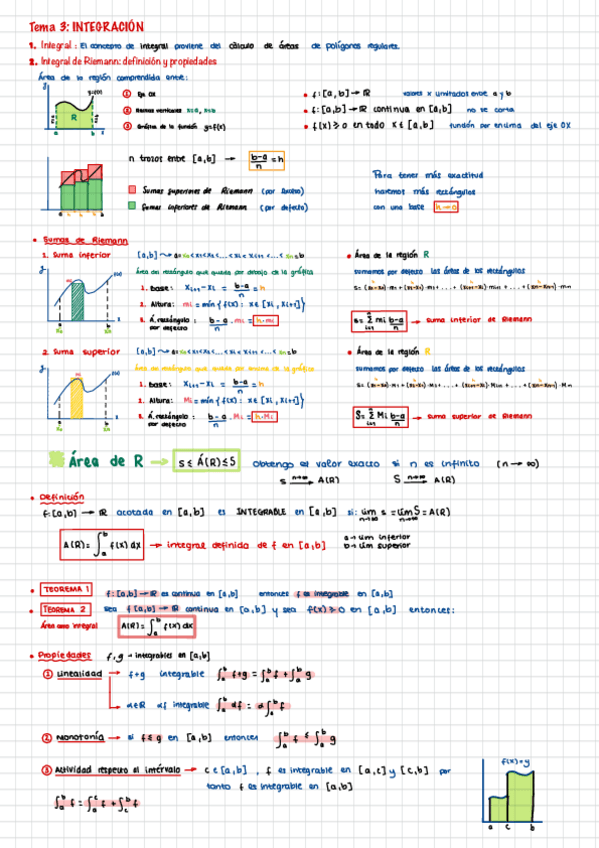 Tema 3: INTEGRACIÓN
1. Integral: El concepto de integral proviene del cálculo de áreas de polígonos regulares.
2. Integral de Riemann: definición y propiedades
Área de la región comprendida entre:
① Eje OX
② Rectas verticales x=a, x=b
③ Gráfica de la función y=f(x)
• f: [a,b] → ℝ valores x limitados entre a y b
• f: [a,b] → ℝ continua en [a,b] no se corta
• f(x) ≥ 0 en todo x ∈ [a,b] función por encima del eje OX
y
y=f(x)
R
a b
n trozos entre [a,b] → b-a/n = h
Sumas superiores de Riemann (por exceso)
Sumas inferiores de Riemann (por defecto)
Para tener más exactitud
haremos más rectángulos
con una base h→0
• Sumas de Riemann
1. Suma inferior
Área del rectángulo que queda por debajo de la gráfica
1. base: xᵢ₊₁-xᵢ = b-a/n = h
2. Altura: mᵢ = mín {f(x) : x ∈ [xᵢ, xᵢ₊₁]}
3. Á. rectángulo por defecto: b-a/n · mᵢ = h·mᵢ
• Área de la región R
sumamos por defecto las áreas de los rectángulos
s = Σ mᵢ b-a/n → suma inferior de Riemann
2. Suma superior
1. base: xᵢ₊₁-xᵢ = b-a/n = h
3. Á. rectángulo por defecto: b-a/n · Mᵢ = h·Mᵢ
• Área de la región R
sumamos por defecto las áreas de los rectángulos
S = Σ Mᵢ b-a/n → suma superior de Riemann
Área de R → s ≤ Á(R) ≤ S obtengo el valor exacto si n es infinito (n→∞)
s n→∞ → A(R) S n→∞ → A(R)
• Definición
f: [a,b] → ℝ acotada en [a,b] es INTEGRABLE en [a,b] si: lím n→∞ s = lím n→∞ S = A(R)
A(R) = ∫ₐᵇ f(x) dx → integral definida de f en [a,b]
a → lím inferior
b → lím superior
• TEOREMA 1 f: [a,b] → ℝ es continua en [a,b] entonces f es integrable en [a,b]
• TEOREMA 2 sea f [a,b] → ℝ continua en [a,b] y sea f(x) ≥ 0 en [a,b] entonces:
Área como integral A(R) = ∫ₐᵇ f(x) dx
• Propiedades f, g → integrables en [a,b]
① Linealidad → f+g integrable ∫ₐᵇ f+g = ∫ₐᵇ f + ∫ₐᵇ g
α∈ℝ αf integrable ∫ₐᵇ αf = α∫ₐᵇ f
② Monotonía → si f ≤ g en [a,b] entonces ∫ₐᵇ f ≤ ∫ₐᵇ g
③ Actividad respecto al intérvalo → c ∈ [a,b], f es integrable en [a,c] y [c,b] por
tanto f es integrable en [a,b]
∫ₐᵇ f = ∫ₐᶜ f + ∫꜀ᵇ f
f(x)=y
a c b